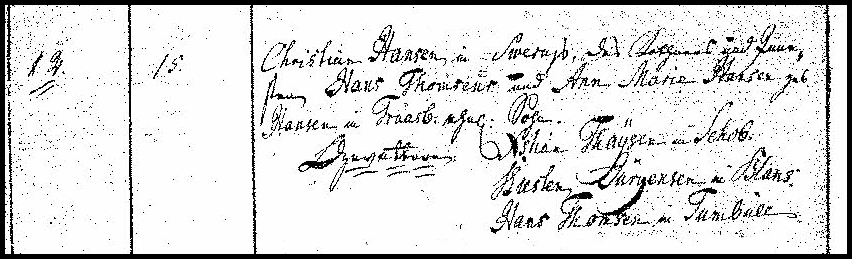 13. 15. Christian Hansen in Swerup, des Kätners und Inns-
ten Hans Thomsens und Ann Marie Hansen geb
Hansen in Traasb. ehel. Sohn.
Gevattern. Christian Thaysen in Schob.
Jürgensen in Blans.
Hans Thomsen in Tumbüll